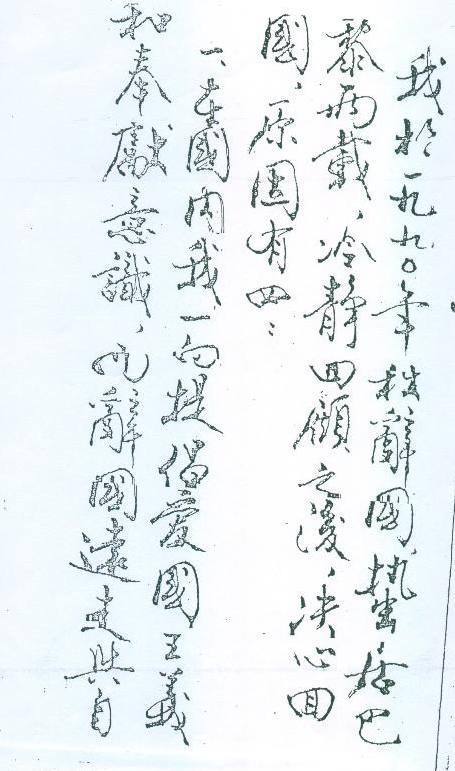 我於一九九〇年秋辭國，蟄居巴
黎兩載，冷靜回顧之後，決心回
國，原因有四：
一、在國内我一向提倡愛國主義
和奉獻意識，而辭國遠走與自